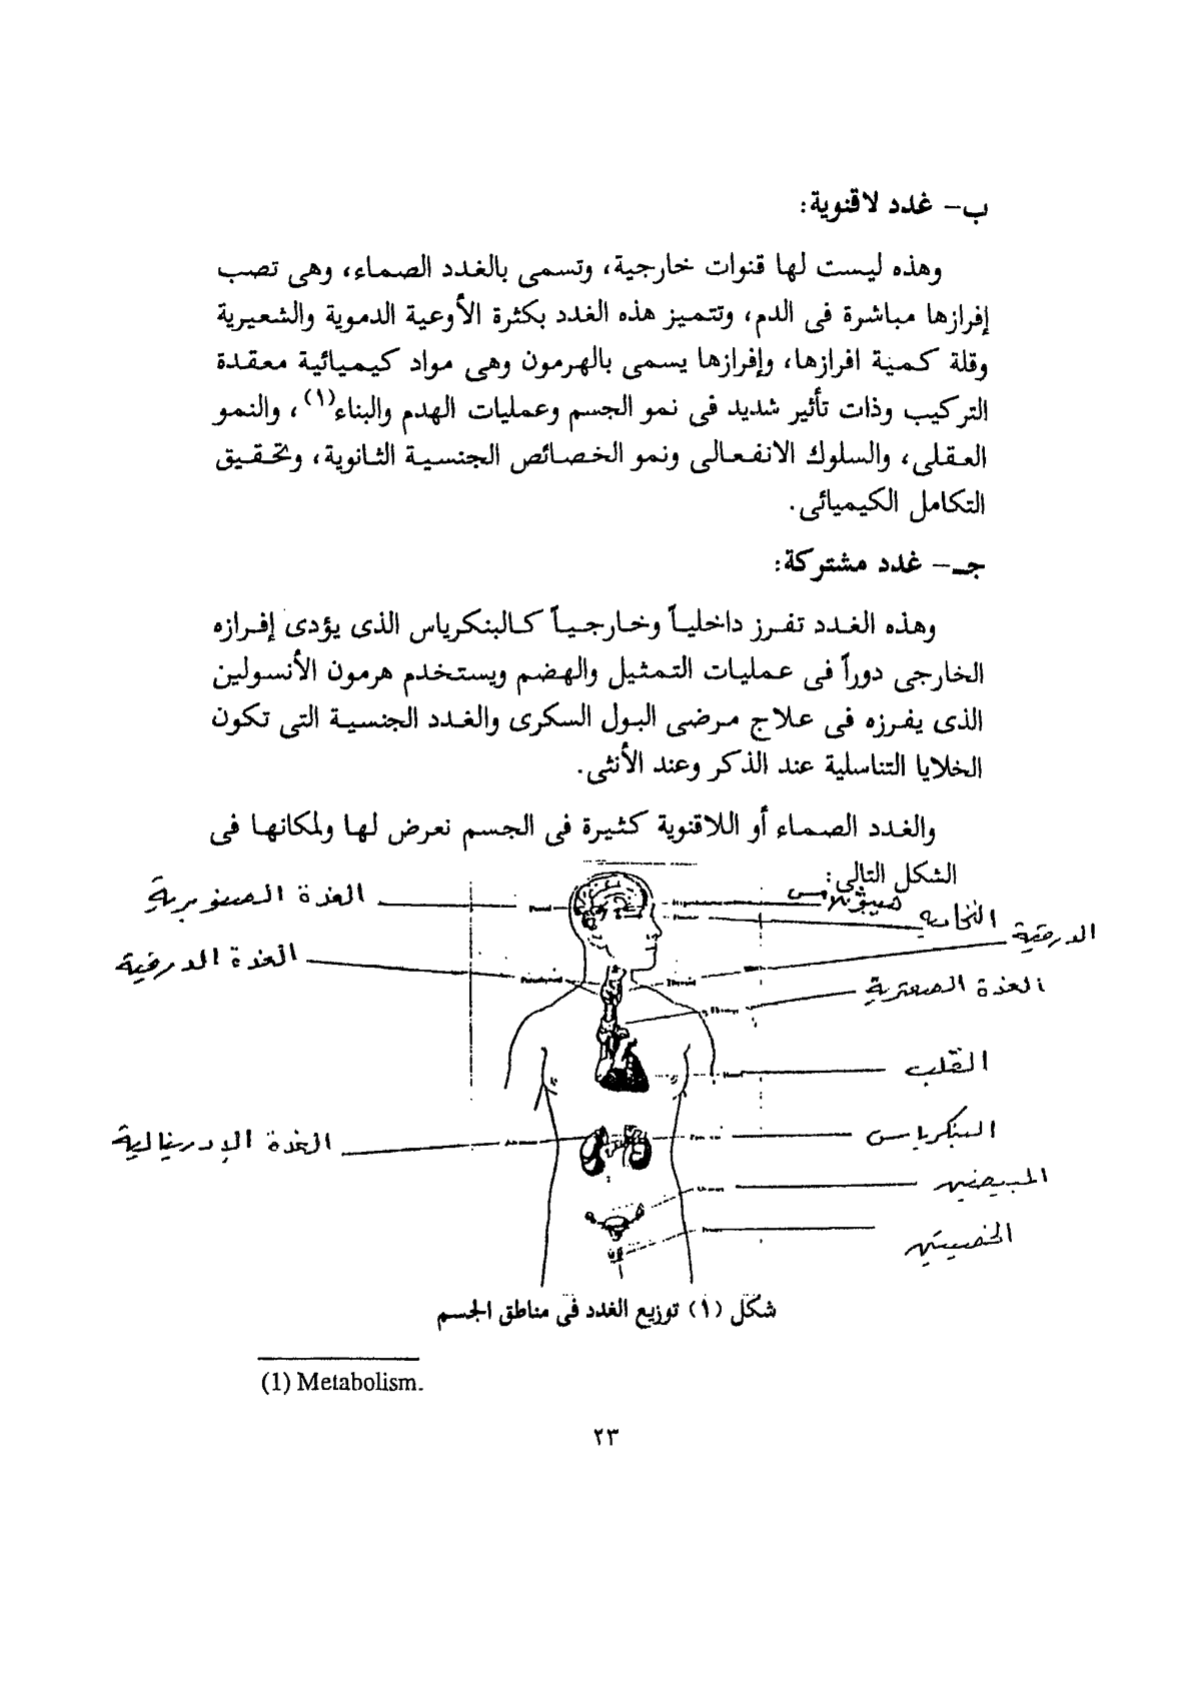 ب- غدد لاقنوية:
وهذه ليست لها قنوات خارجية، وتسمى بالغدد الصماء، وهى تصب
إفرازها مباشرة فى الدم، وتتميز هذه الغدد بكثرة الأوعية الدموية والشعيرية
وقلة كمية افرازها، وإفرازها يسمى بالهرمون وهى مواد كيميائية معقدة
التركيب وذات تأثير شديد فى نمو الجسم وعمليات الهدم والبناء(١)، والنمو
العقلى، والسلوك الانفعالى ونمو الخصائص الجنسية الثانوية، وتحقيق
التكامل الكيميائى.
جـ- غدد مشتركة:
وهذه الغدد تفرز داخلياً وخارجياً كالبنكرياس الذى يؤدى إفرازه
الخارجى دوراً فى عمليات التمثيل والهضم ويستخدم هرمون الأنسولين
الذى يفرزه فى علاج مرضى البول السكرى والغدد الجنسية التى تكون
الخلايا التناسلية عند الذكر وعند الأنثى.
والغدد الصماء أو اللاقنوية كثيرة فى الجسم نعرض لها ولمكانها فى
الشكل التالى:
الغدة الصنوبرية
النخامية
الدرقية
الغدة الدرقية
الغدة الصعترية
القلب
البنكرياس
الغدة الإدرينالية
المبيضين
الخصيتين
شكل (١) توزيع الغدد فى مناطق الجسم
(1) Metabolism.
٢٣